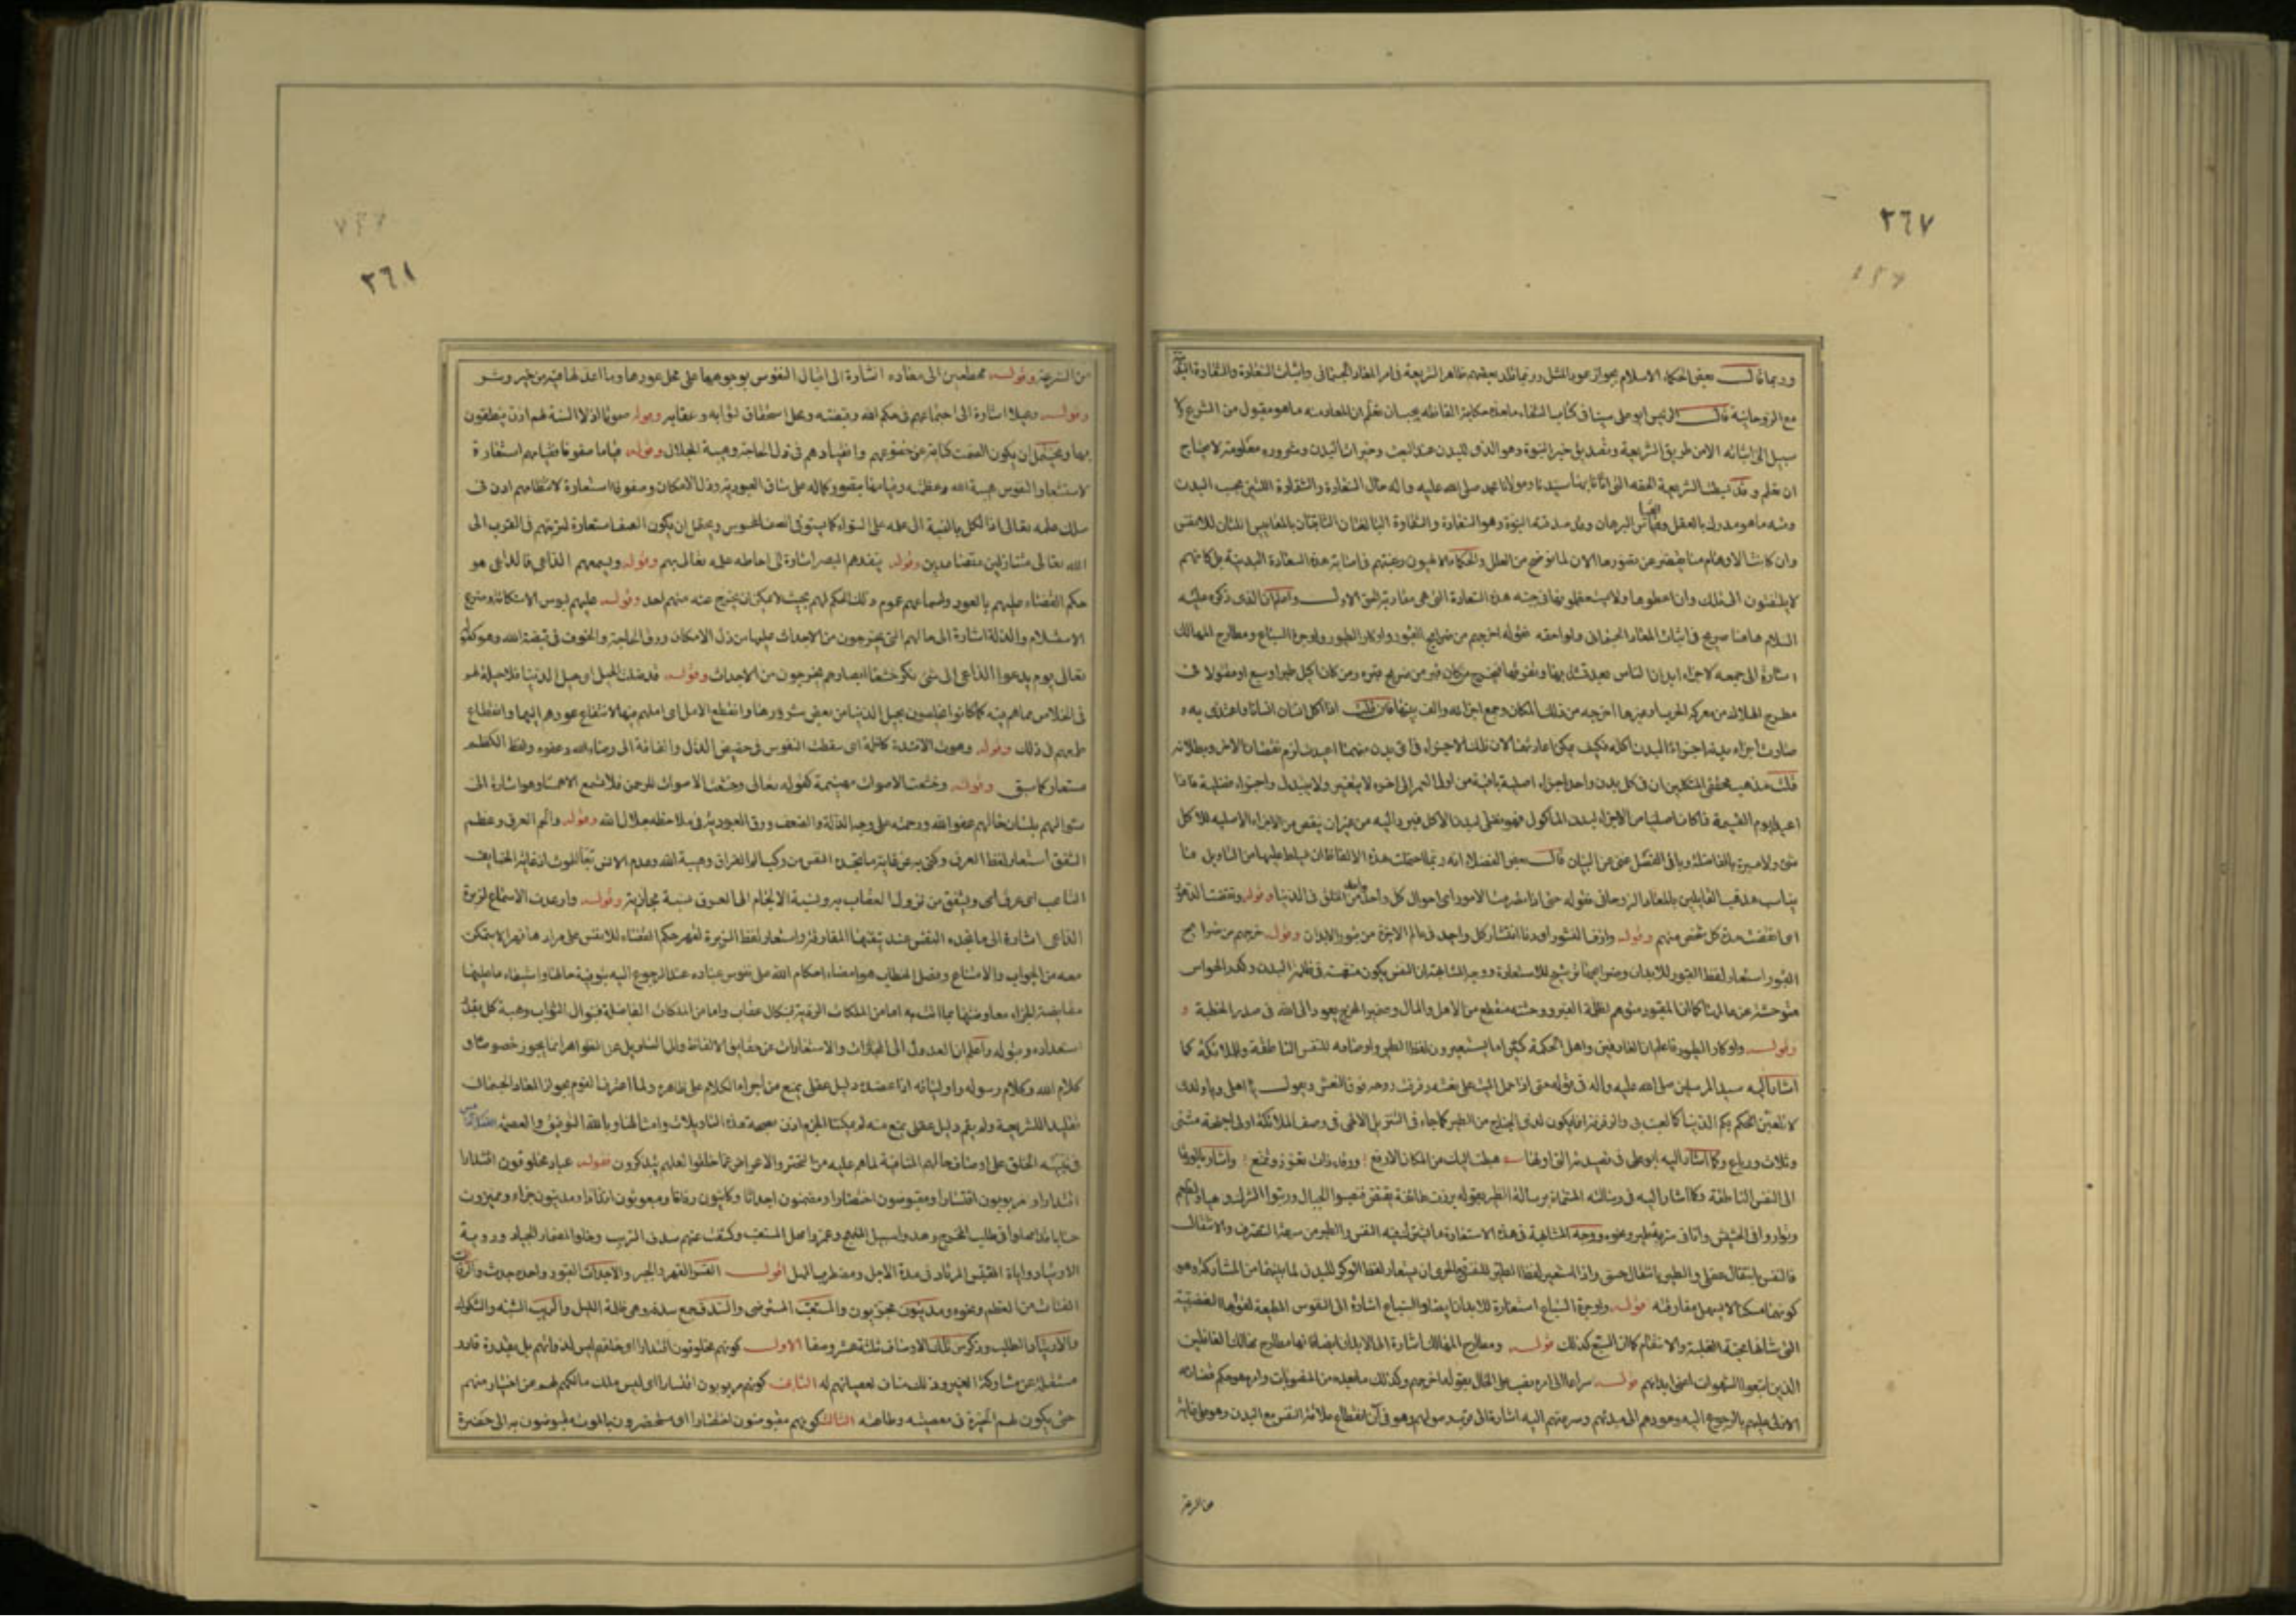 ٢٦٧
وربما قال بعض الحكماء الاسلام بجواز عود المثل وربما قلد بعضهم ظاهر الشريعة فى امر المعاد الجسمانى واثبات السعادة والشقاوة البدنية
مع الروحانية قال الرئيس ابو على سينا فى كتاب الشفاء ما هذه حكاية الفاظه يجب ان تعلم ان المعاد منه ما هو مقبول من الشرع ولا
سبيل الى اثباته الا من طريق الشريعة وتصديق خبر النبوة وهو الذى للبدن عند البعث وخيرات البدن وشروره معلومة لا يحتاج
ان تعلم وقد بسطت الشريعة الحقة التى اتانا بها سيدنا ومولانا محمد صلى الله عليه واله حال السعادة والشقاوة اللتين بحسب البدن
ومنه ما هو مدرك بالعقل والقياس البرهان وقد صدقته النبوة وهو السعادة والشقاوة البالغتان الثابتتان بالمقاييس اللتان للانفس
وان كانت الاوهام منا تقصر عن تصورها الان لما نوضح من العلل والحكماء الالهيون رغبتهم فى اصابة هذه السعادة البدنية بل كانهم
لا يلتفتون الى تلك وان اعطوها ولا يستعظمونها فى جنبه هذه السعادة التى هى مقاربة الحق الاول واعلم ان الذى ذكره عليه
السلام هاهنا صريح فى اثبات المعاد الجسمانى ولواحقه فقوله اخرجهم من ضرايح القبور واوكار الطيور واوجرة السباع ومطارح المهالك
اشارة الى جمعه لاجزاء ابدان الناس بعد تشذبها وتفرقها فيخرج من كان قبر من ضريح قبره ومن كان اكيل طير او سبع او مقتولا فى
مطرح الهلاك من معركة الحرب او غيرها اخرجه من ذلك المكان وجمع اجزائه والف بينها فان قلت اذا اكل انسان انسانا واغتذى به و
صارت اجزاء بدنه اجزاء لبدن اكله فكيف يمكن اعادتهما لان تلك الاجزاء فى اى بدن منهما اعيدت لزم نقصان الاخر وبطلانه
قلت مذهب محققى المتكلمين ان فى كل بدن واحد اجزاء اصلية باقية من اول العمر الى اخره لا يتغير ولا يتبدل واجزاء فضلية فاذا
اعيد يوم القيمة فما كان اصليا من الاجزاء لبدن الماكول فهو فضلى لبدن الاكل فيرد اليه من غير ان ينقص من الاجزاء الاصلية للاكل
شئ ولا عبرة بالفاضلة وباقى الفصل غنى عن البيان قال بعض الفضلاء انه ربما احتملت هذه الالفاظ ان يسلط عليها من التاويل ما
يناسب مذهب القايلين بالمعاد الروحانى فقوله حتى اذا تصرمت الامور اى احوال كل واحد من الخلق فى الدنيا وقوله وتقضت الدهور
اى انقضت مدة كل شخص منهم وقوله وازف النشور اى دنا انتشار كل واحد فى عالم الاخرة من قبور الابدان وقوله اخرجهم من ضرايح
القبور استعار لفظ القبور للابدان وضرايحها ترشيح للاستعارة ووجه المشابهة ان النفس يكون منغمسة فى ظلمة البدن وكدر الحواس
متوحشة عن عالمها كما ان المقبور متوهم لظلمة القبر ووحشته منقطع من الاهل والمال وضمير المخرج يعود الى الله فى صدر الخطبة و
وقوله واوكار الطيور فاعلم ان العارفين واهل الحكمة كثيرا ما يستعيرون لفظ الطير واوصافه للنفس الناطقة وللملائكة كما
اشار اليه سيد المرسلين صلى الله عليه واله فى قوله حتى اذا حمل الميت على نعشه رفرفت روحه فوق النعش ويقول يا اهلى ويا ولدى
لا تلعبن بكم الدنيا كما لعبت بى والرفرفة انما يكون لذى الجناح من الطير كما جاء فى التنزيل الالهى فى وصف الملائكة اولى اجنحة مثنى
وثلاث ورباع وكما اشار اليه ابو على فى قصيدته التى اولها هبطت اليك من المكان الارفع ورقاء ذات تعزز وتمنع واشار بالورقاء
الى النفس الناطقة وكما اشار اليه فى رسالته المسماة برسالة الطير بقوله برزت طائفة يقتنص فنصبوا الحبال ورتبوا الشرك وهياوا الطعم
وتواروا فى الحشيش وانا فى سربة طير ونحوه ووجه المشابهة فى هذه الاستعارة ما يشترك فيه النفس والطير من سرعة التصرف والانتقال
فالنفس بانتقال عقلى والطير بانتقال حسى واذا استعير لفظ الطير للنفس فبالحرى ان يستعار لفظ الوكر للبدن لما بينهما من المشاركة وهو
كونهما مسكنا لا يسهل مفارقته وقوله واوجرة السباع استعارة للابدان ايضا والسباع اشارة الى النفوس المطيعة لقوتها الغضبية
التى شانها محبة الغلبة والانتقام كما ان السبع كذلك وقوله ومطارح المهالك اشارة الى الابدان ايضا فانها مطارح مهالك الغافلين
الذين اتبعوا الشهوات اعنى ابدانهم وقوله سراعا الى امره نصب على الحال بقوله اخرجهم وكذلك ما بعده من المنصوبات وامره هو حكم قضائه
الازلى عليهم بالرجوع اليه وعودهم الى مبدئهم وسرعتهم اليه اشارة الى قرب وصولهم وهو فى آن انقطاع علاقة النفس مع البدن وهو على غاية
من السرعة
٢٦٨
من السرعة وقوله مهطعين الى معاده اشارة الى اقبال النفوس بوجوهها على محل عودها وما اعد لها فيه من خير وشر
وقوله رعيلا اشارة الى اجتماعهم فى حكم الله وقبضته ومحل استحقاق ثوابه وعقابه وقوله صموتا اذ لا السنة لهم اذن ينطقون
بها ويحتمل ان يكون الصمت كناية عن خضوعهم وانقيادهم فى ذل الحاجة وهيبة الجلال وقوله قياما صفوفا فقيامهم استعارة
لاستشعار النفوس هيبة الله وعظمته وقيامها بتصور كماله على ساق العبودية وذل الامكان وصفوفا استعارة لانتظامهم اذن فى
سلك علمه تعالى اذ الكل بالنسبة الى علمه على السواء كما يستوى الصف المحسوس ويحتمل ان يكون الصف استعارة لترتبهم فى القرب الى
الله تعالى متنازلين متصاعدين وقوله ينفذهم البصر اشارة الى احاطة علمه تعالى بهم وقوله ويسمعهم الداعى فالداعى هو
حكم القضاء عليهم بالعود واسماعهم عموم ذلك الحكم لهم بحيث لا يمكن ان يخرج عنه منهم احد وقوله عليهم لبوس الاستكانة وضرع
الاستسلام والذلة اشارة الى حالهم التى يخرجون من الاجداث عليها من ذل الامكان ورق الحاجة والخوف فى قبضة الله وهو كقوله
تعالى يوم يدعو الداعى الى شئ نكر خشعا ابصارهم يخرجون من الاجداث وقوله قد ضلت الحيل اى حيل الدنيا فلا حيلة لهم
فى الخلاص مما هم فيه كما كانوا يخلصون بحيل الدنيا من بعض شرورها وانقطع الامل اى املهم فيها لامتناع عودهم اليها وانقطاع
طمعهم فى ذلك وقوله وهوت الافئدة كاظمة اى سقطت النفوس فى حضيض الذل والفاقة الى رضاء الله وعفوه ولفظ الكظم
مستعار كما سبق وقوله وخشعت الاصوات مهينمة كقوله تعالى وخشعت الاصوات للرحمن فلا تسمع الا همسا وهو اشارة الى
سؤالهم بلسان حالهم عفو الله ورحمته على وجه الذلة والضعف ورق العبودية فى ملاحظة جلال الله وقوله والجم العرق وعظم
الشفق استعار لفظ العرق وكنى به عن غاية ما تجده النفس من كرب الم الفراق وهيبة الله وعدم الانس بما بعد الموت اذ غاية الخائف
التاعب ان يعرق اى ويشفق من نزول العقاب به ونسبة الالجام الى العرق نسبة مجازية وقوله وارعدت الاسماع لزبرة
الداعى اشارة الى ما تجده النفس عند تيقنها المفارقة واستعار لفظ الزبرة لقهر حكم القضاء للانفس على مرادها قهرا لا يتمكن
معه من الجواب والامتناع وفصل الخطاب هو امضاء احكام الله على نفوس عباده عند الرجوع اليه بتوفية مالها واستيفاء ما عليها
مقايضة الجزاء معاوضتها بما اتت به اما من الملكات الردية بنكال عقاب واما من الملكات الفاضلة فبنوال الثواب وهبة كل بقدر
استعداده وقبوله واعلم ان العدول الى المجازات والاستعارات عن حقايق الالفاظ والى التاويل عن الظواهر انما يجوز خصوصا فى
كلام الله وكلام رسوله واوليائه اذا عضده دليل عقلى يمنع من اجراء الكلام على ظاهره ولما اعترف القوم بجواز المعاد الجسمانى
تقليدا للشريعة ولم يقم دليل عقلى يمنع منه لم يمكنا الجزم اذن بصحة هذه التاويلات وامثالها وبالله التوفيق والعصمة
فى تنبيه الخلق على اوصاف حالهم المنافية لما هم عليه من التجبر والاعراض عما خلقوا لعلهم يتذكرون فقوله عباد مخلوقون اقتدارا
ومربوبون اقتسارا ومقبوضون احتضارا ومضمنون اجداثا وكائنون رفاتا ومبعوثون افرادا ومدينون جزاء ومميزون
حسابا قد امهلوا فى طلب المخرج وهدوا سبيل المنهج وعمروا مهل المستعتب وكشفت عنهم سدف الريب وخلوا لمضمار الجياد وروية
الارتياد واناة المقتبس المرتاد فى مدة الاجل ومضطرب المهل اقول القسر القهر والجبر والاجداث القبور واحده جدث والرفات
الفتات من العظم ونحوه ومدينون مجزيون والمستعتب المسترضى والسدف جمع سدفة وهى ظلمة الليل والريب الشبه والشكوك
والارتياد الطلب وذكر من تلك الاوصاف ثلثة عشر وصفا الاول كونهم مخلوقون اقتدارا اى خلقهم ليس لذواتهم بل بقدرة قادر
مستقلة عن مشاركة الغير وذلك مناف لعصيانهم له الثانى كونهم مربوبون اقتسارا اى ليس ملك مالكهم لهم عن اختيار منهم
حتى يكون لهم الخيرة فى معصيته وطاعته الثالث كونهم مقبوضون احتضارا اى مستحضرون بالموت مقبوضون به الى حضرة